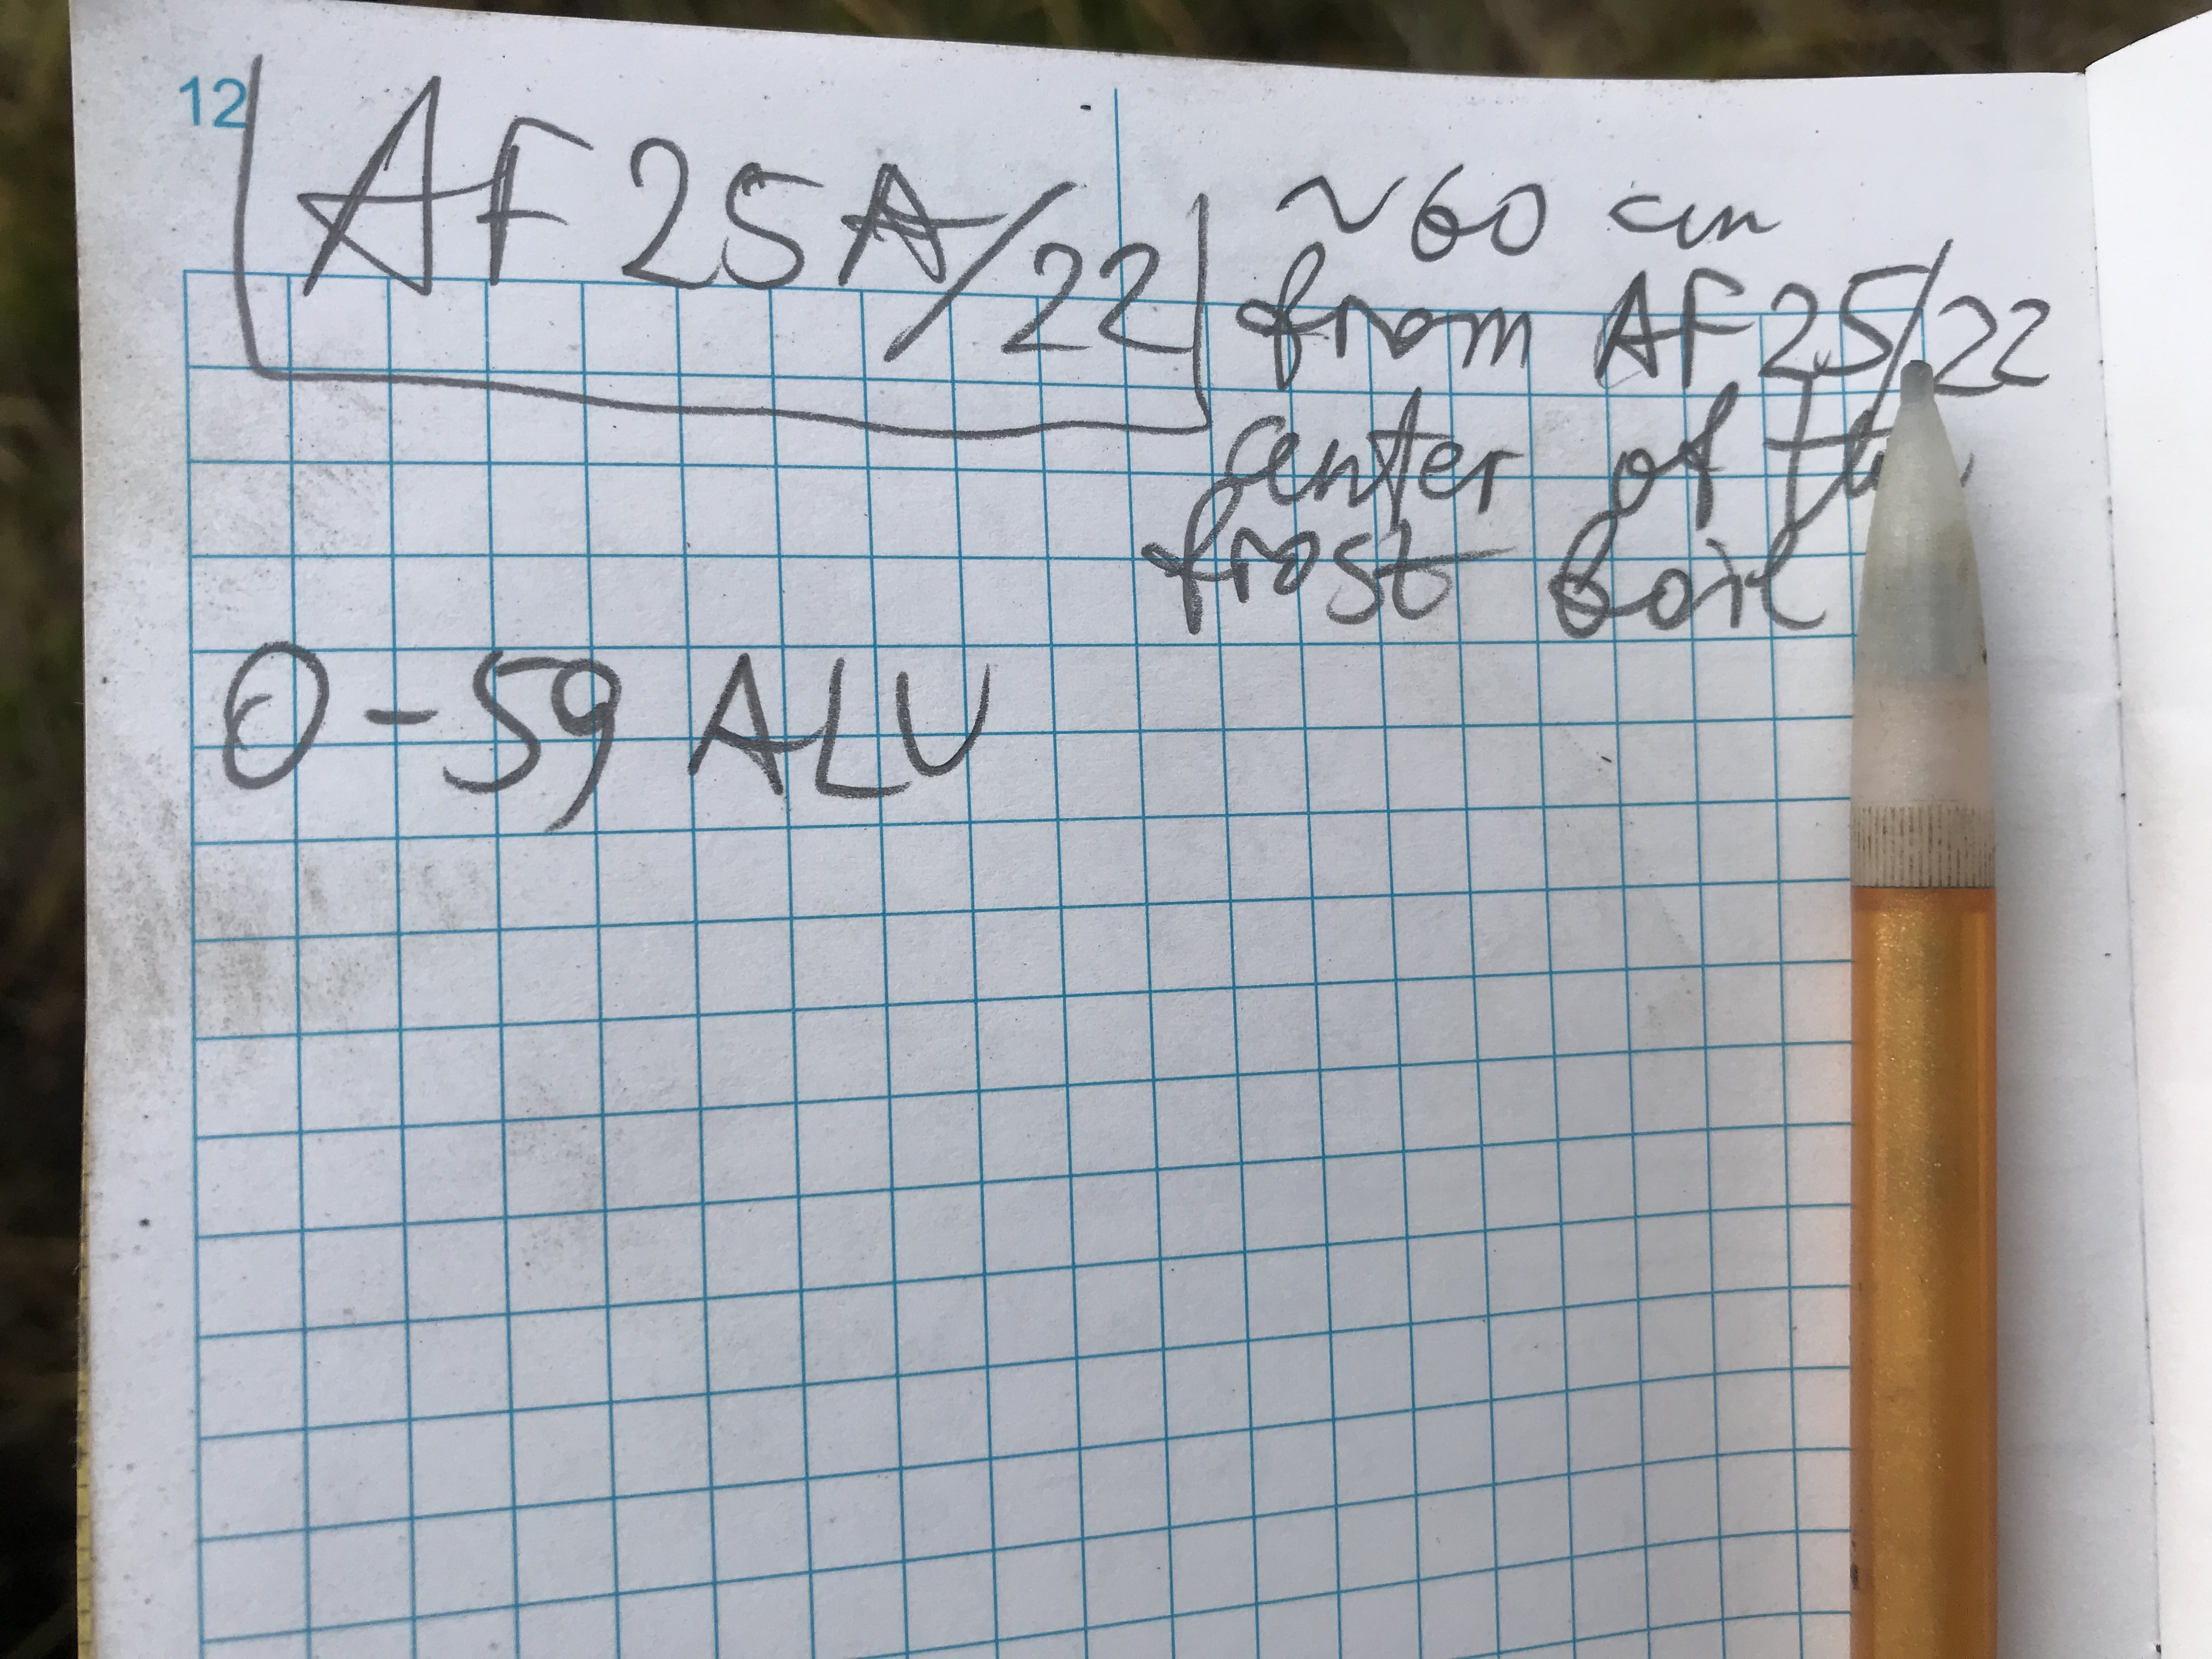 12
AF 25A/22
~60 cm
from AF 25/22
center of the
frost boil
0-59 ALU